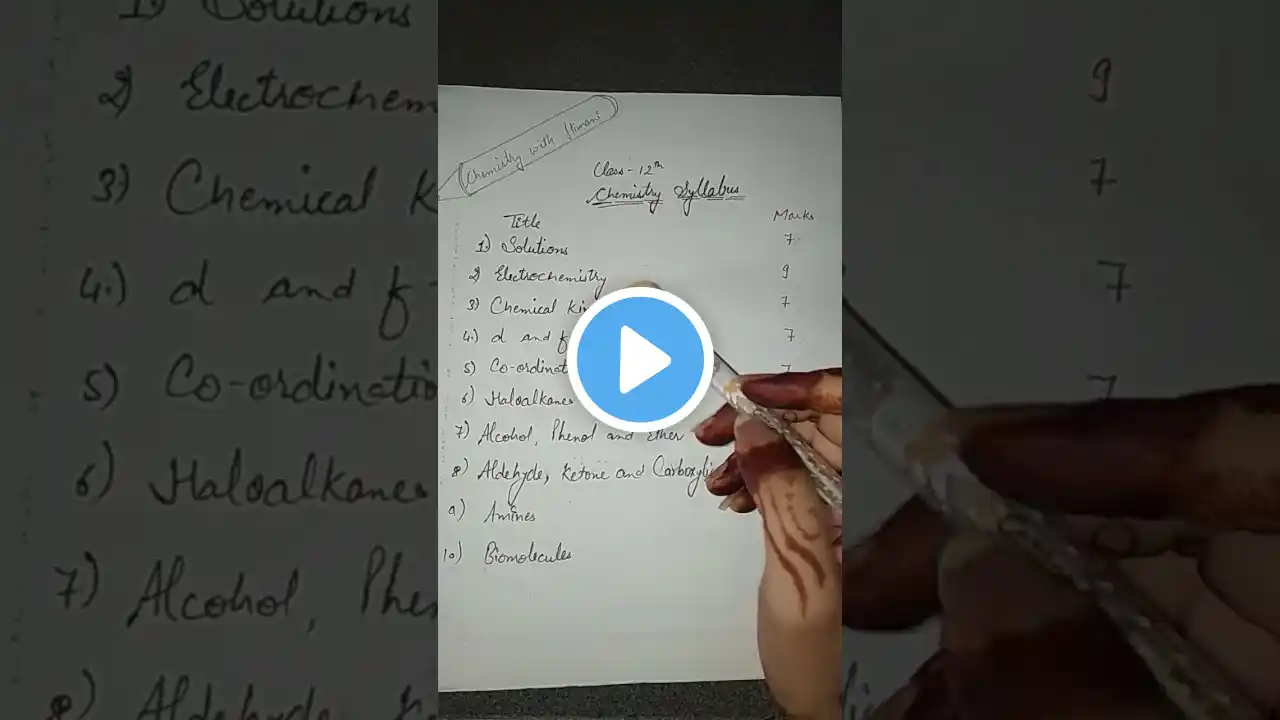 Chemistry with Himani
Class - 12th
Chemistry Syllabus
Title Marks
1) Solutions 7
2) Electrochemistry 9
3) Chemical 7
4.) d and f 7
5) 7
6) Haloalkanes
7) Alcohol, Phenol and Ether
8) Aldehyde, Ketone and
9) Amines
10) Biomolecules